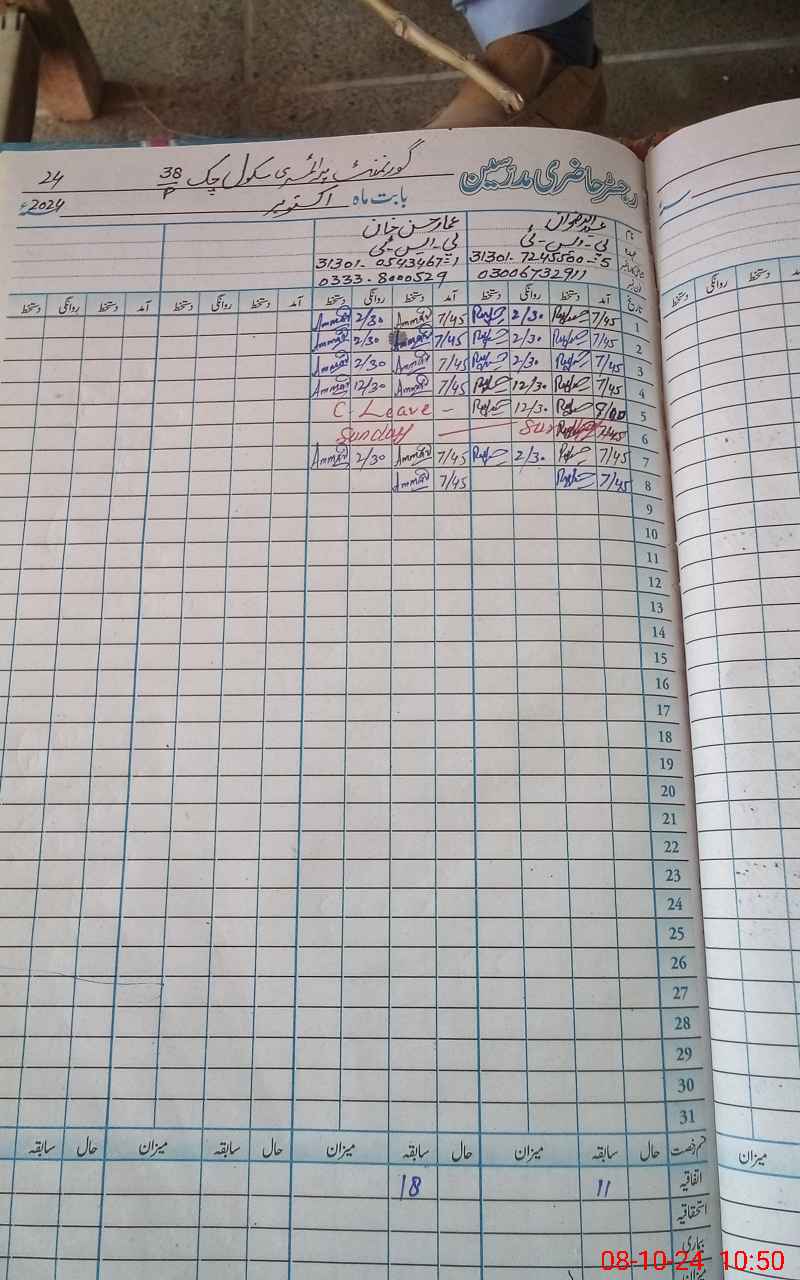 رجسٹر حاضری مدرسین گورنمنٹ پرائمری سکول چک 38/P 24
بابت ماہ اکتوبر 2024ء
نام عمار حسن خان
عہدہ پی۔ایس۔ٹی پی۔ایس۔ٹی
31301-7245500-5 31301-0543467-1
03006732911 0333-8000529
تاریخ آمد دستخط روانگی دستخط آمد دستخط روانگی دستخط آمد دستخط روانگی دستخط آمد دستخط روانگی دستخط
1 7/45 2/30 7/45 Ammar 2/30 Ammar
2 7/45 2/30 7/45 Ammar 2/30 Ammar
3 7/45 2/30 7/45 Ammar 2/30 Ammar
4 7/45 12/30 7/45 Ammar 12/30 Ammar
5 9/00 12/30 - C. Leave
6 7/45 Sunday — Sunday
7 7/45 2/30 7/45 Ammar 2/30 Ammar
8 7/45 7/45 Ammar
9
10
11
12
13
14
15
16
17
18
19
20
21
22
23
24
25
26
27
28
29
30
31
قسم رخصت حال سابقہ میزان حال سابقہ میزان حال سابقہ میزان حال سابقہ
اتفاقیہ 11 18
استحقاقیہ
بیماری
میزان
دستخط روانگی دستخط
میزان
08-10-24 10:50